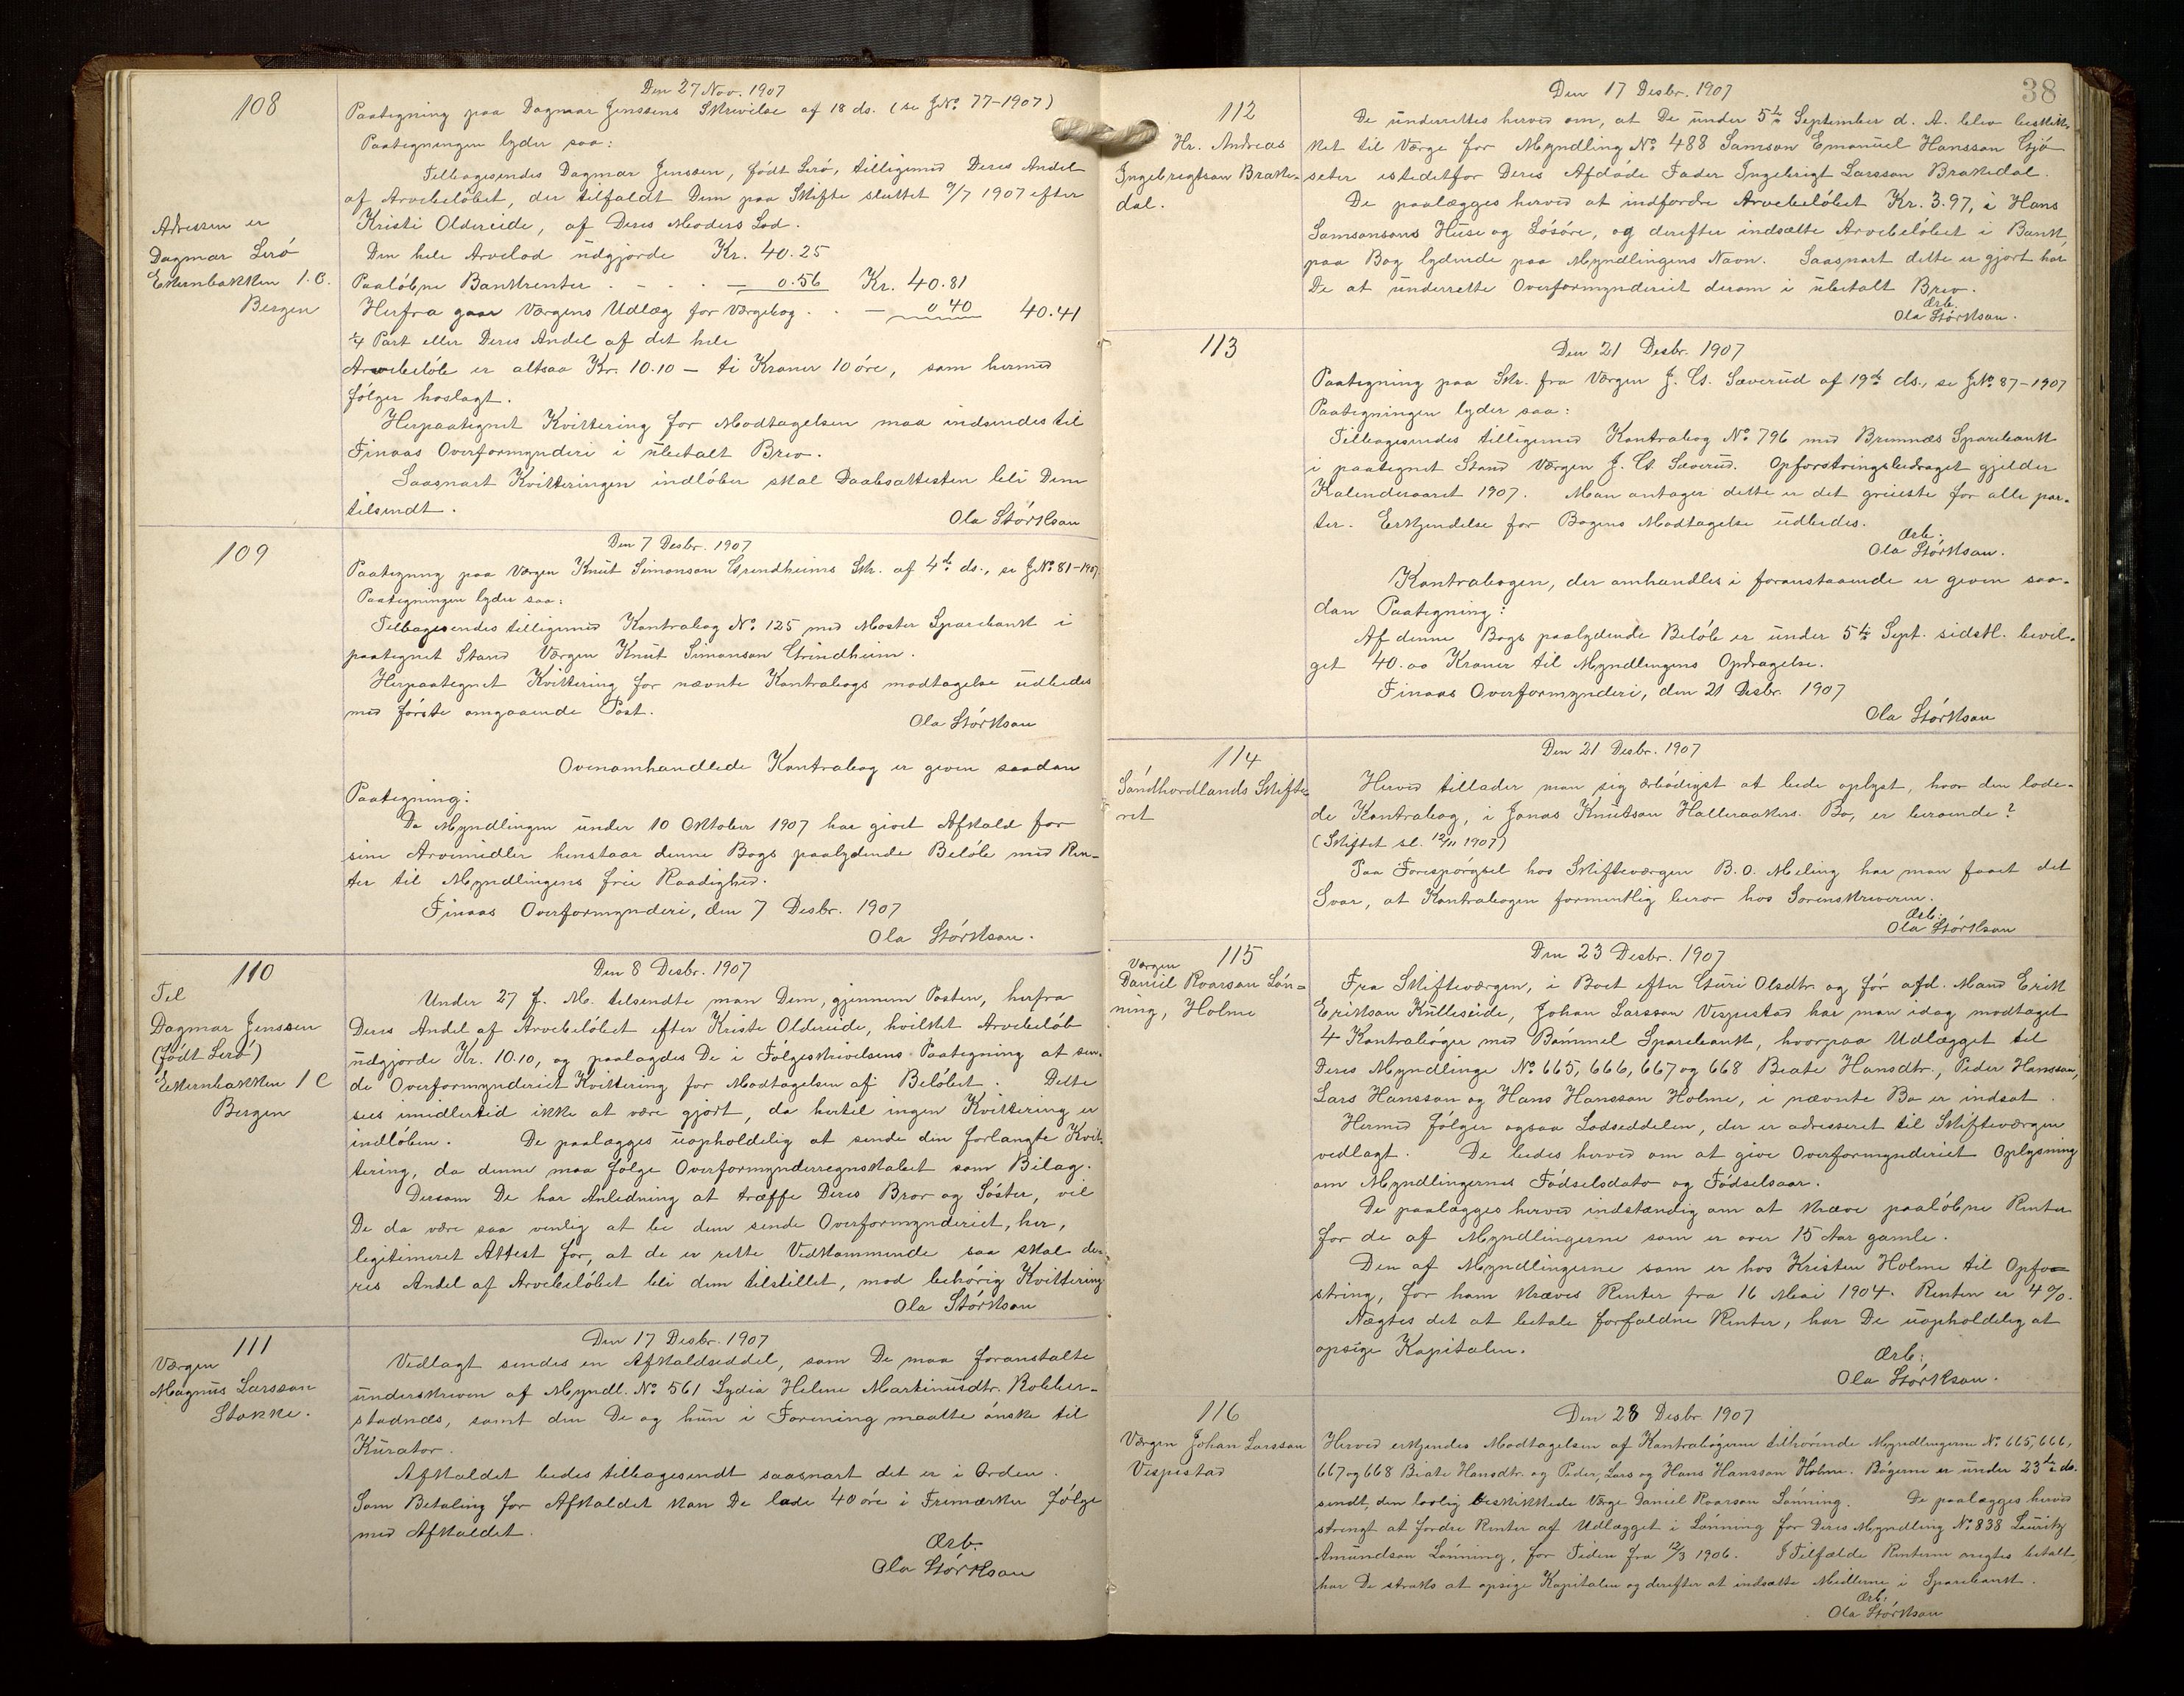 108
Den 27 Nov. 1907
Paategning paa Dagmar Jenssens Skrivelse af 18 ds. (se JNo. 77-1907)
Paategningen lyder saa:
Tilbagesendes Dagmar Jenssen, født Lerö, tilligemed Deres Andel
af Arvebeløbet, der tilfaldt Dem paa Skifte sluttet 9/7 1907 efter
Kristi Oldereide, af Deres Moders Lod.
Adressen er
Dagmar Lerö
Ekernbakken 1.C.
Bergen
Den hele Arvelod udgjorde Kr. 40.25
Paaløbne Bankrenter . - - . - 0.56 Kr. 40.81
Herfra gaar Værgens Udlæg for Værgebog . . — 0 40 40.41
¼ Part eller Deres Andel af det hele
Arvebeløb er altsaa Kr. 10.10 — ti Kroner 10 øre, som hermed
følger hoslagt.
Herpaategnet Kvittering for Modtagelsen maa indsendes til
Finaas Overformynderi i ubetalt Brev.
Saasnart Kvitteringen indløber skal Daabsattesten bli Dem
tilsendt.
Ola Störkson
109
Den 7 Desbr. 1907
Paategning paa Værgen Knut Simonson Grindheims Skr. af 4de ds., se JNo. 81-1907
Paategningen lyder saa:
Tilbagesendes tilligemed Kontrabog No. 125 med Moster Sparebank i
paategnet Stand Værgen Knut Simonson Grindheim.
Herpaategnet Kvittering for nævnte Kontrabogs modtagelse udbedes
med første omgaaende Post.
Ola Störkson
Ovenomhandlede Kontrabog er given saadan
Paategning:
Da Myndlingen under 10 Oktober 1907 har givet Afkald for
sine Arvemidler henstaar denne Bogs paalydende Beløb med Ren-
ter til Myndlingens frie Raadighed.
Finaas Overformynderi, den 7 Desbr. 1907
Ola Störkson.
110
Til
Dagmar Jenssen
(født Lerö)
Ekernbakken 1 C
Bergen
Den 8 Desbr. 1907
Under 27 f. M. tilsendte man Dem, gjennem Posten, herfra
Deres Andel af Arvebeløbet efter Kristi Oldereide, hvilket Arvebeløb
udgjorde Kr. 10.10, og paalagdes De i Følgeskrivelsens Paategning at sen-
de Overformynderiet Kvittering for Modtagelsen af Beløbet. Dette
sees imidlertid ikke at være gjort, da hertil ingen Kvittering er
indløben. De paalægges uopholdelig at sende den forlangte Kvit-
tering, da denne maa følge Overformynderregnskabet som Bilag.
Dersom De har Anledning at træffe Deres Bror og Søster, vil
De da være saa venlig at be dem sende Overformynderiet, her,
legitimeret Attest for, at de er rette Vedkommende saa skal de-
res Andel af Arvebeløbet bli dem tilstillet, mod behørig Kvittering
Ola Störkson
111
Værgen
Magnus Larsson
Stokke.
Den 17 Desbr. 1907
Vedlagt sendes en Afkaldseddel, som De maa foranstalte
underskreven af Myndl. No. 561 Lydia Helene Martinusdtr. Robber-
stadnæs, samt den De og hun i Forening maatte ønske til
Kurator.
Afkaldet bedes tilbagesendt saasnart det er i Orden.
Som Betaling for Afkaldet kan De lade 40 øre i Frimærker følge
med Afkaldet.
Ærb.
Ola Störkson
38
112
Hr. Andreas
Ingebrigtson Brake-
dal.
Den 17 Desbr. 1907
De underrettes herved om, at De under 5te September d. A. blev beskik-
ket til Værge for Myndling No. 488 Samson Emanuel Hansson Gjö-
seter istedetfor Deres Afdøde Fader Ingebrigt Larsson Brakedal.
De paalægges herved at indfordre Arvebeløbet Kr. 3.97, i Hans
Samsonsons Huse og Løsøre, og derefter indsætte Arvebeløbet i Bank,
paa Bog lydende paa Myndlingens Navn. Saasnart dette er gjort har
De at underrette Overformynderiet derom i ubetalt Brev.
Ærb.
Ola Störkson.
113
Den 21 Desbr. 1907
Paategning paa Skr. fra Værgen J. G. Sæverud af 19de ds., se JNo. 87-1907
Paategningen lyder saa:
Tilbagesendes tilligemed Kontrabog No. 796 med Bremnæs Sparebank
i paategnet Stand Værgen J. G. Sæverud. Opfostringsbidraget gjelder
Kalenderaaret 1907. Man antager dette er det greieste for alle par-
ter. Erkjendelse for Bogens Modtagelse udbedes.
Ærb.
Ola Störkson.
Kontrabogen, der omhandles i foranstaaende er given saa-
dan Paategning:
Af denne Bogs paalydende Beløb er under 5te Sept. sidstl. bevil-
get 40.00 Kroner til Myndlingens Opdragelse.
Finaas Overformynderi, den 21 Desbr. 1907
Ola Störkson
114
Søndhordlands Skifte-
ret
Den 21 Desbr. 1907
Herved tillader man sig ærbødigst at bede oplyst, hvor den lode-
de Kontrabog, i Jonas Knutson Halleraakers Bo, er beroende?
(Skiftet sl. 12/11 1907)
Paa Forespørgsel hos Skifteværgen B. O. Meling har man faaet det
Svar, at Kontrabogen formentlig beror hos Sorenskriveren.
Ærb.
Ola Störkson
115
Værgen
Daniel Roarson Løn-
ning, Holme
Den 23 Desbr. 1907
Fra Skifteværgen, i Boet efter Guri Olsdtr. og før afd. Mand Erik
Erikson Kulleseide, Johan Larsson Vespestad har man idag modtaget
4 Kontrabøger med Bømmel Sparebank, hvorpaa Udlægget til
Deres Myndlinge No. 665, 666, 667 og 668 Beate Hansdtr., Peder Hansson,
Lars Hansson og Hans Hansson Holme, i nævnte Bo er indsat.
Hermed følger ogsaa Lodseddelen, der er adresseret til Skifteværgen
vedlagt. De bedes herved om at give Overformynderiet Oplysning
om Myndlingernes Fødselsdato og Fødselsaar.
De paalægges herved indstændig om at kræve paaløbne Renter
for de af Myndlingerne som er over 15 Aar gamle.
Den af Myndlingerne som er hos Kristen Holme til Opfo-
string, for ham kræves Renter fra 16 Mai 1904. Renten er 4%.
Nægtes det at betale forfaldne Renter, har De uopholdelig at
opsige Kapitalen.
Ærb.
Ola Störkson.
116
Værgen Johan Larsson
Vespestad
Den 28 Desbr. 1907
Herved erkjendes Modtagelsen af Kontrabøgerne tilhørende Myndlingerne No. 665, 666,
667 og 668 Beate Hansdtr. og Peder, Lars og Hans Hansson Holme. Bøgerne er under 23de ds.
sendt, den lovlig beskikkede Værge Daniel Roarson Lønning. De paalægges herved
strengt at fordre Renter af Udlægget i Lønning for Deres Myndling No. 838 Lauritz
Amundson Lønning, for Tiden fra 12/3 1906. I Tilfælde Renterne nægtes betalt,
har De straks at opsige Kapitalen og derefter at indsætte Midlerne i Sparebank.
Ærb.
Ola Störkson